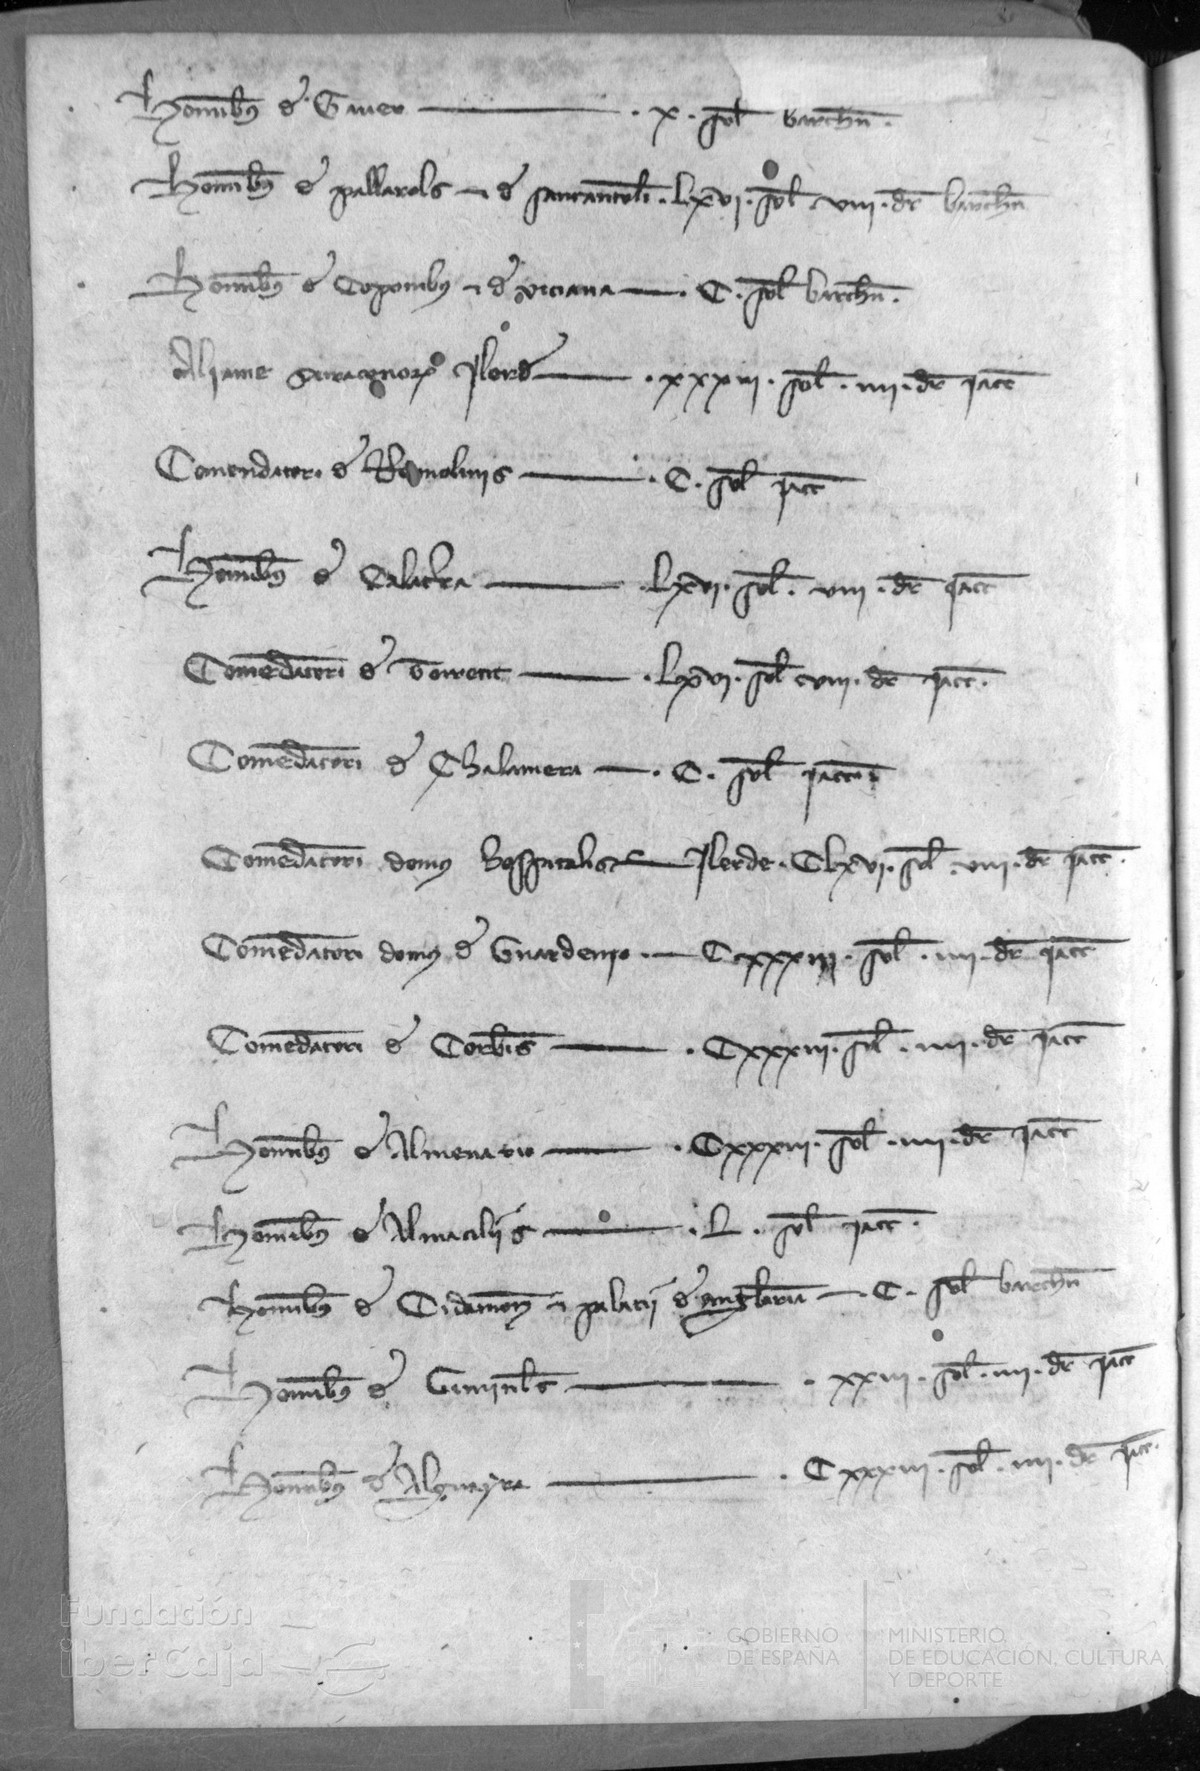 Hominibꝰ de Gaver · x · sol barchn ·
Hominibꝰ de pallarols ⁊ de sancantolí · Lxvi · sol viii · dr barchn
Hominibꝰ de Coponibꝰ ⁊ de viciana · C · sol barchn ·
Aliame sarracenoꝝ Ilerd · xxxiii · sol · iiii · dr iacc
Comendatori de Romolinis · C · sol iacc
Hominibꝰ de Calatra · Lxvi · sol · viii · dr iacc
Comedatori de Torrent · Lxvi · sol viii · dr iacc ·
Comedatori de Chalamera · C · sol iacc
Comedatori domus hospitalis Ilerde · CLxvi · sol · viii · dr iacc ·
Comedatori domꝰ de Guardenyo · CCxxxiii · sol · iiii · dr iacc
Comedatori de Corbis · Cxxxiii · sol · iiii · dr iacc
Hominibꝰ de Almenario · Cxxxiii · sol · iiii · dr iacc
Hominibꝰ de Almaciliis · L · sol iacc ·
Hominibꝰ de Cidamon ⁊ palacii de anglaria · C · sol barchn
Hominibꝰ de · xxiii · sol · iiii · dr iacc
Hominibꝰ de Alguayra · Cxxxiii · sol · iiii · dr iacc ·
Fundación
iberCaja
GOBIERNO
DE ESPAÑA
MINISTERIO
DE EDUCACIÓN, CULTURA
Y DEPORTE